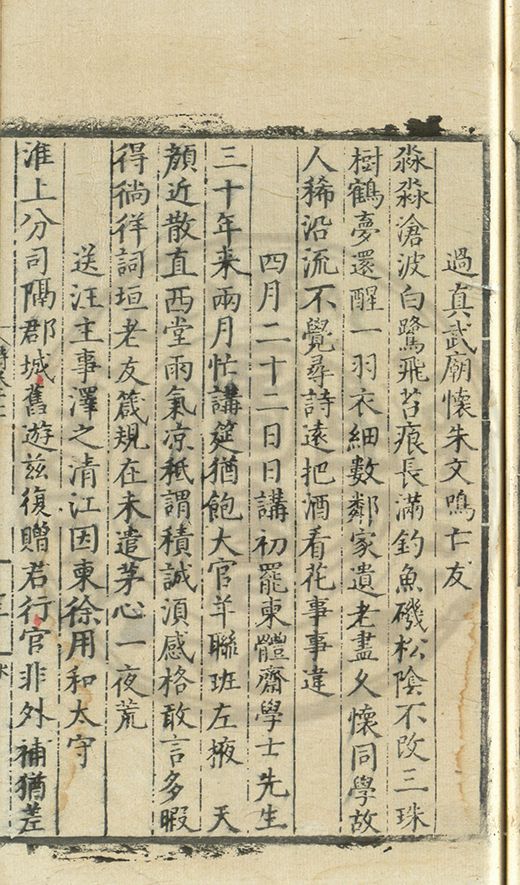 過真武廟懷朱文鳴亡友
淼淼滄波白鷺飛苔痕長滿釣魚磯松陰不改三珠
樹鶴夢還醒一羽衣細數鄰家遺老盡久懷同學故
人稀沿流不覺尋詩遠把酒看花事事違
四月二十二日日講初罷東體齋學士先生
三十年来兩月忙講筵猶飽大官羊聯班左掖 天
顔近散直西堂雨氣凉秪謂積誠須感格敢言多暇
得徜徉詞垣老友箴規在未遣茅心一夜荒
送汪主事澤之清江因柬徐用和太守
淮上分司隔郡城舊遊兹復贈君行官非外補猶差